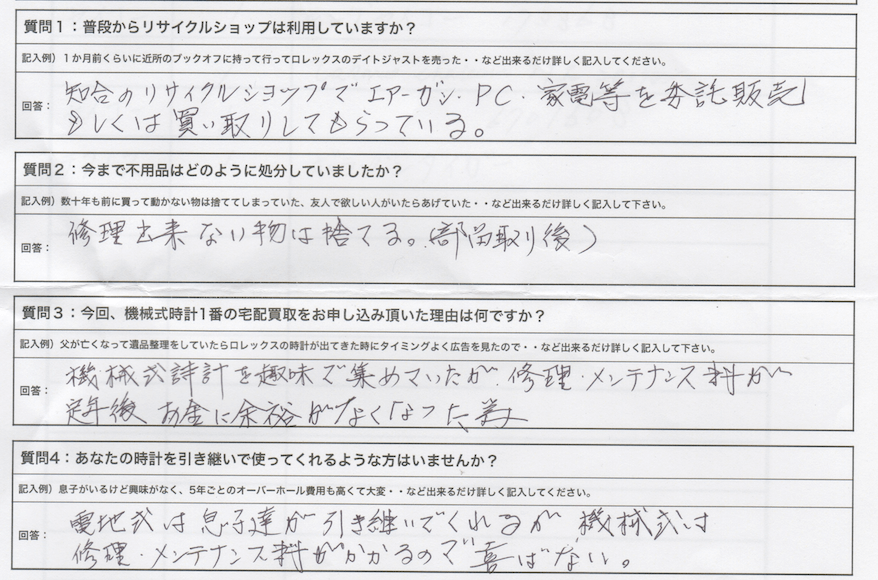 質問1：普段からリサイクルショップは利用していますか？
記入例）1か月前くらいに近所のブックオフに持って行ってロレックスのデイトジャストを売った・・など出来るだけ詳しく記入してください。
回答：
知合のリサイクルショップでエアーガン・PC・家電等を委託販売
もしくは買い取りしてもらっている。
質問2：今まで不用品はどのように処分していましたか？
記入例）数十年も前に買って動かない物は捨ててしまっていた、友人で欲しい人がいたらあげていた・・など出来るだけ詳しく記入して下さい。
回答：
修理出来ない物は捨てる。(部品取り後)
質問3：今回、機械式時計1番の宅配買取をお申し込み頂いた理由は何ですか？
記入例）父が亡くなって遺品整理をしていたらロレックスの時計が出てきた時にタイミングよく広告を見たので・・など出来るだけ詳しく記入して下さい。
回答：
機械式時計を趣味で集めていたが、修理・メンテナンス料が
定年後お金に余裕がなくなった為
質問4：あなたの時計を引き継いで使ってくれるような方はいませんか？
記入例）息子がいるけど興味がなく、5年ごとのオーバーホール費用も高くて大変・・など出来るだけ詳しく記入してください。
回答：
電池式は息子達が引き継いでくれるが機械式は
修理・メンテナンス料がかかるので喜ばない。